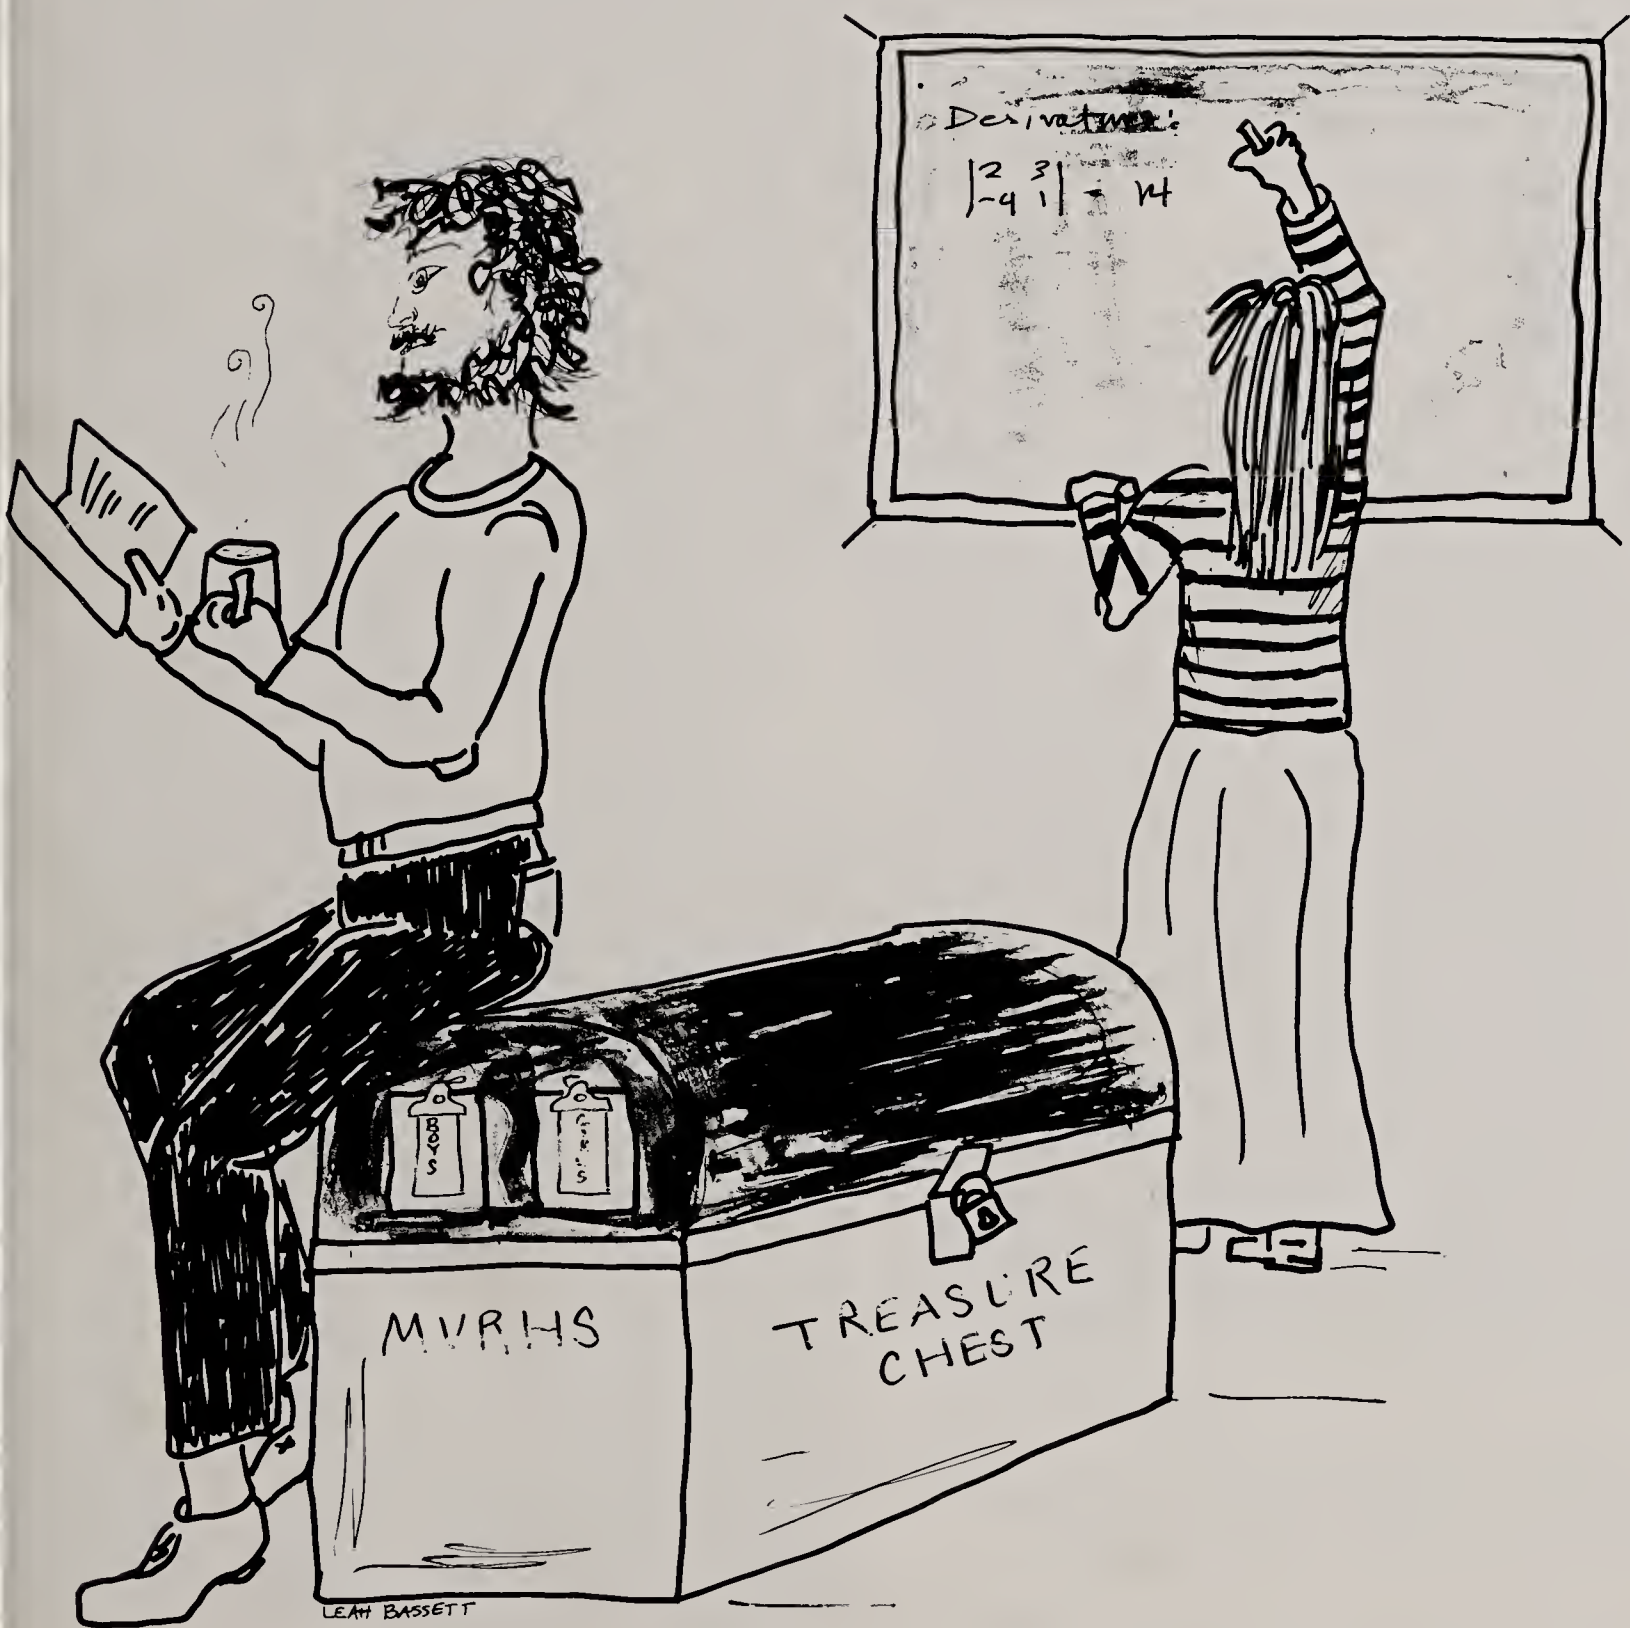 Derivatives:
|2 3|
|-4 1| = 14
BOYS
GIRLS
MVRHS
TREASURE
CHEST
LEAH BASSETT